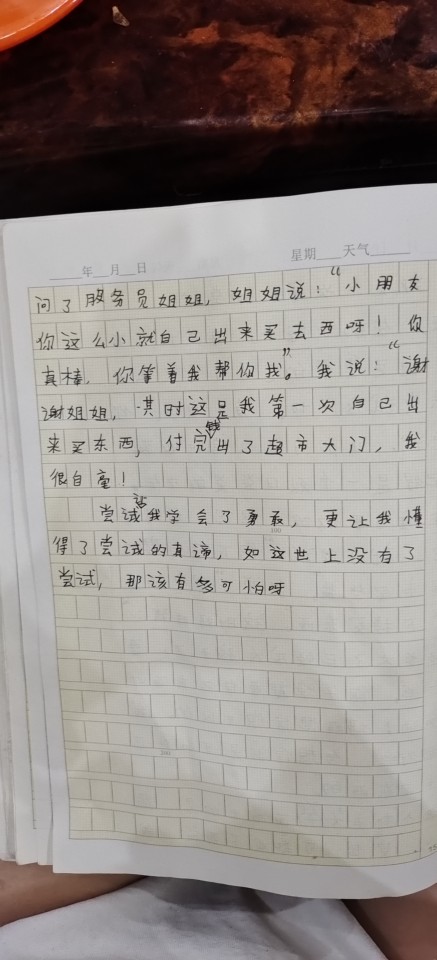 年 月 日 星期 天气
问了服务员姐姐，姐姐说：“小朋友
你这么小就自己出来买东西呀！你
真棒，你等着我帮你找”。我说：“谢
谢姐姐，其时这是我第一次自己出
来买东西，付完钱出了超市大门，我
很自豪！
尝试让我学会了勇敢，更让我懂
得了尝试的真谛，如这世上没有了
尝试，那该有多可怕呀